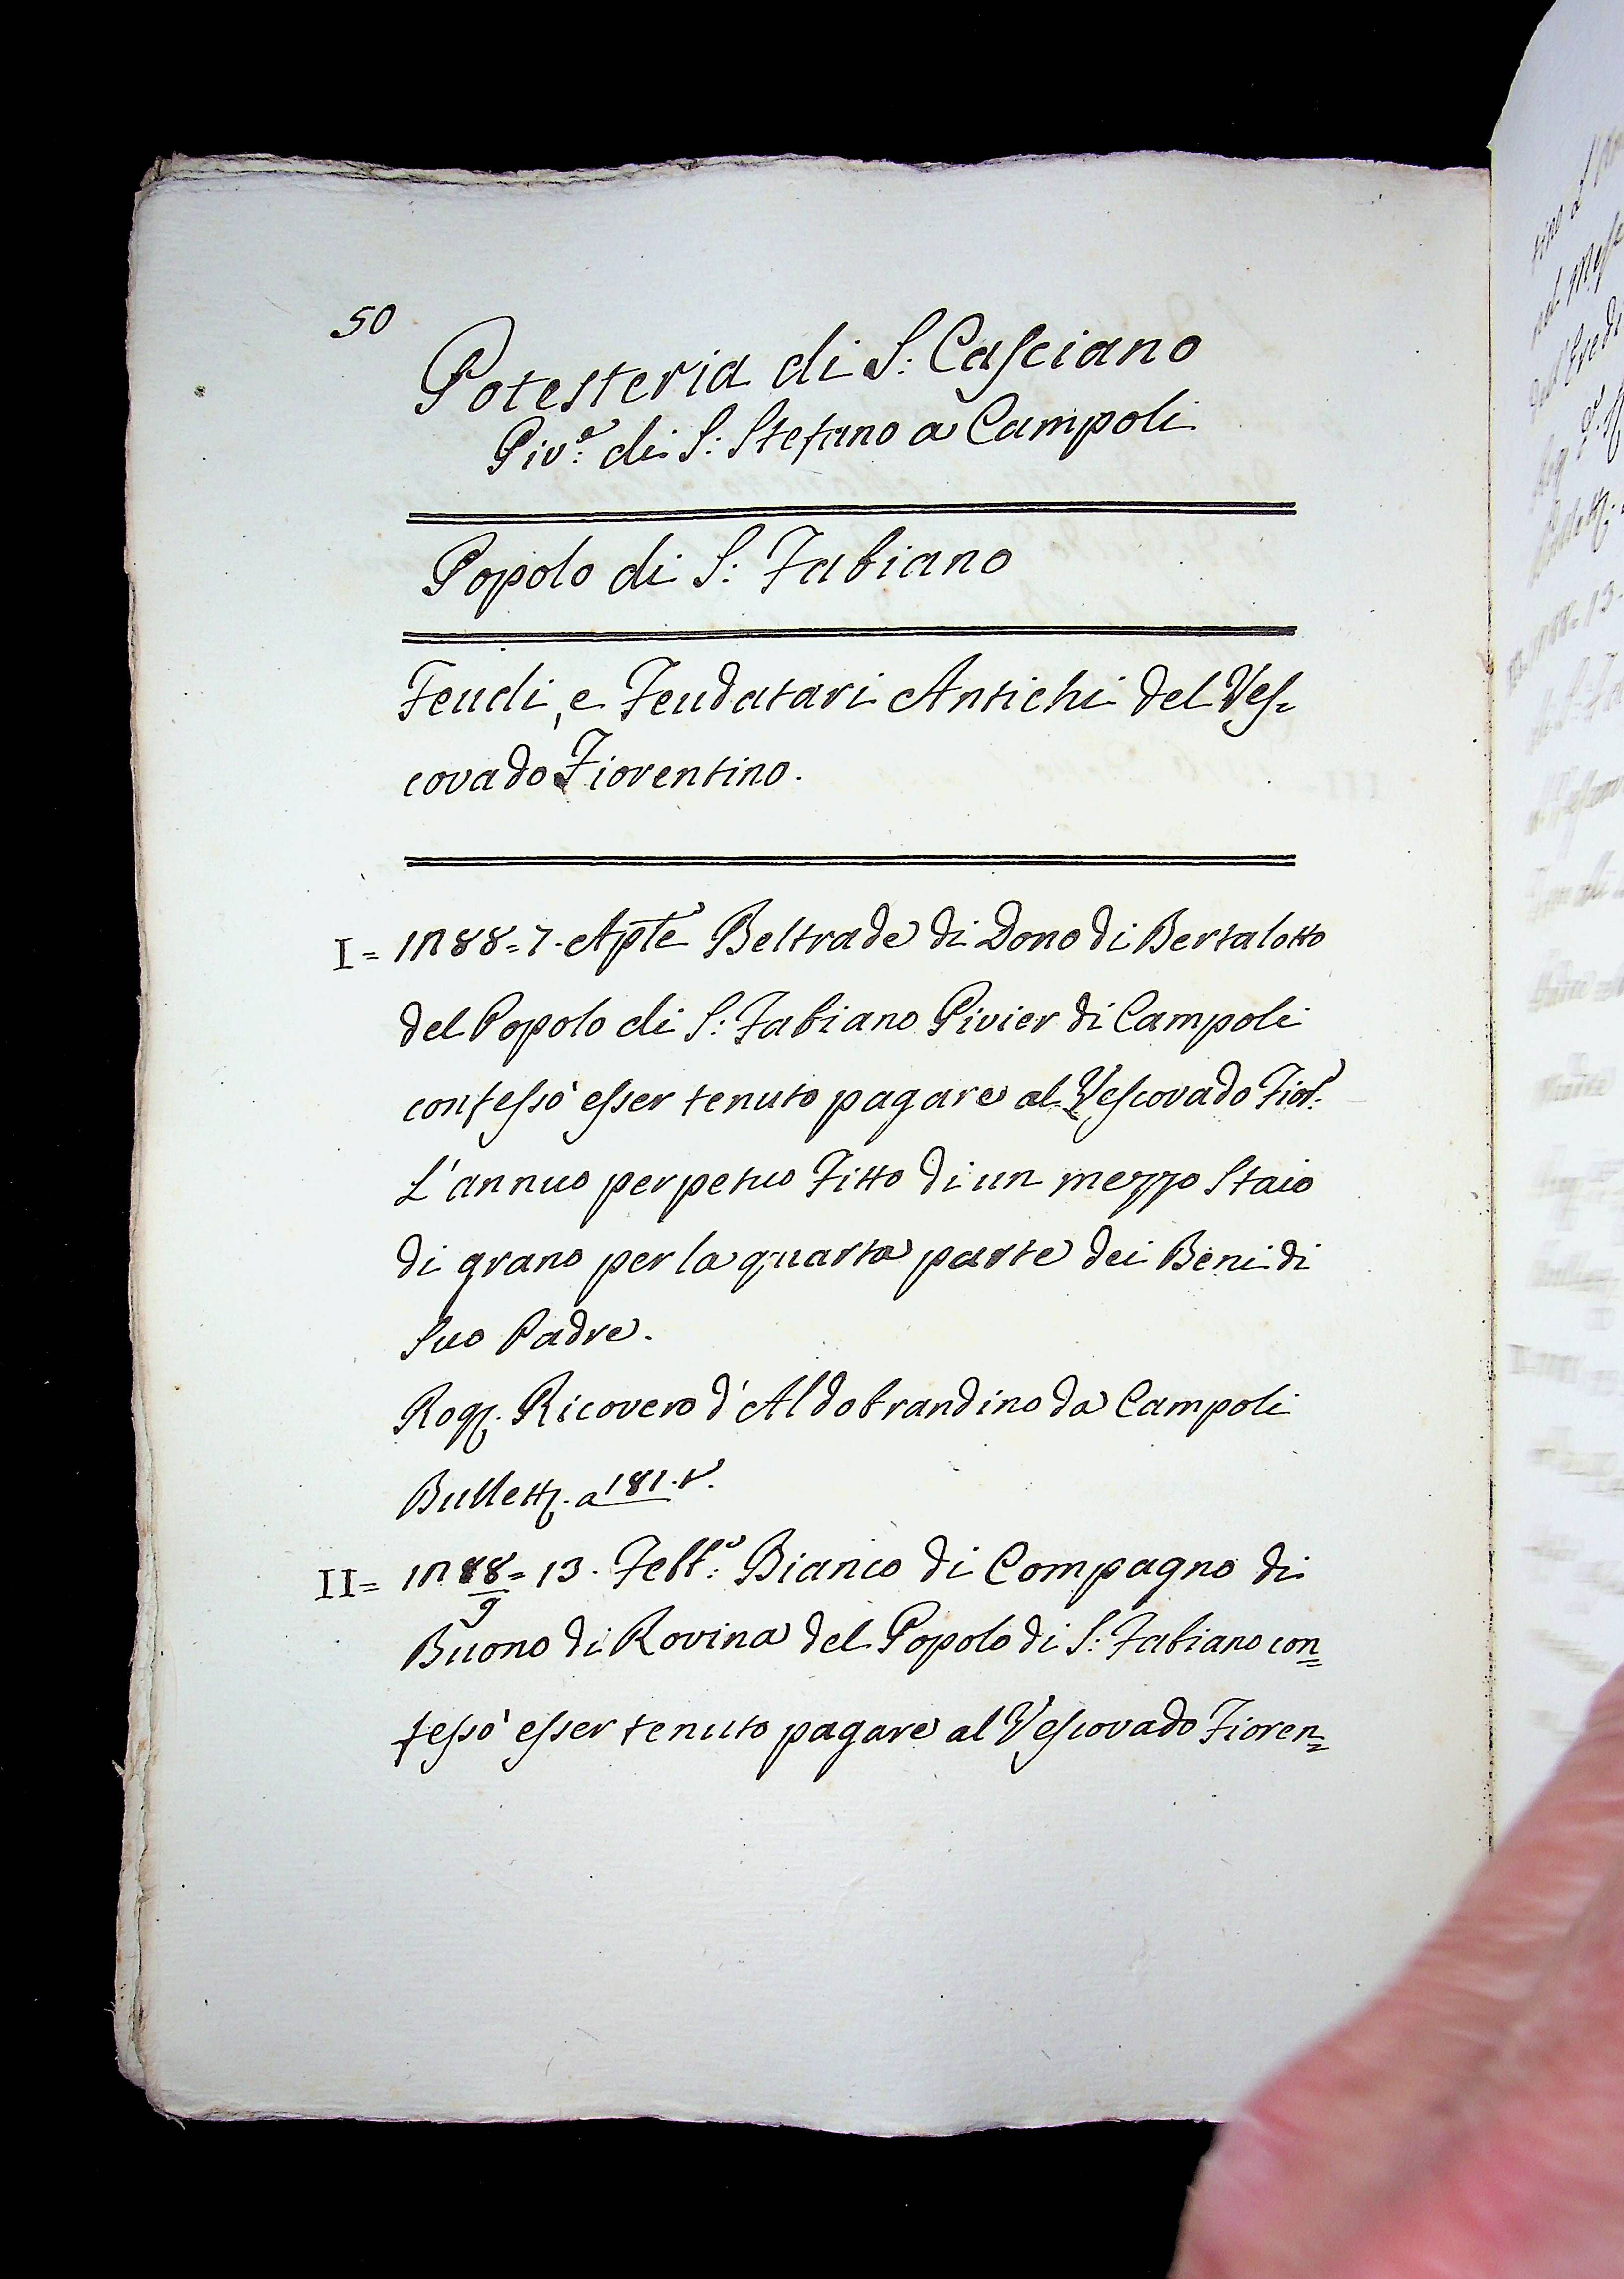 50
Potesteria di S: Casciano
Piv:e di S: Stefano a Campoli
Popolo di S: Fabiano
Feudi, e Feudatari Antichi del Ves=
covado Fiorentino.
I= 1188=7. Aple Beltrade di Dono di Bertalotto
del Popolo di S: Fabiano Pivier di Campoli
confessò esser tenuto pagare al Vescovado Fior:
L'annuo perpetuo Fitto di un mezzo Staio
di grano per la quarta parte dei Beni di
Suo Padre.
Rog. Ricovero d'Aldobrandino da Campoli
Bullett. a 181. v.
II= 1188/9=13. Febb:o Bianco di Compagno di
Buono di Rovina del Popolo di S: Fabiano con=
fessò esser tenuto pagare al Vescovado Fioren=